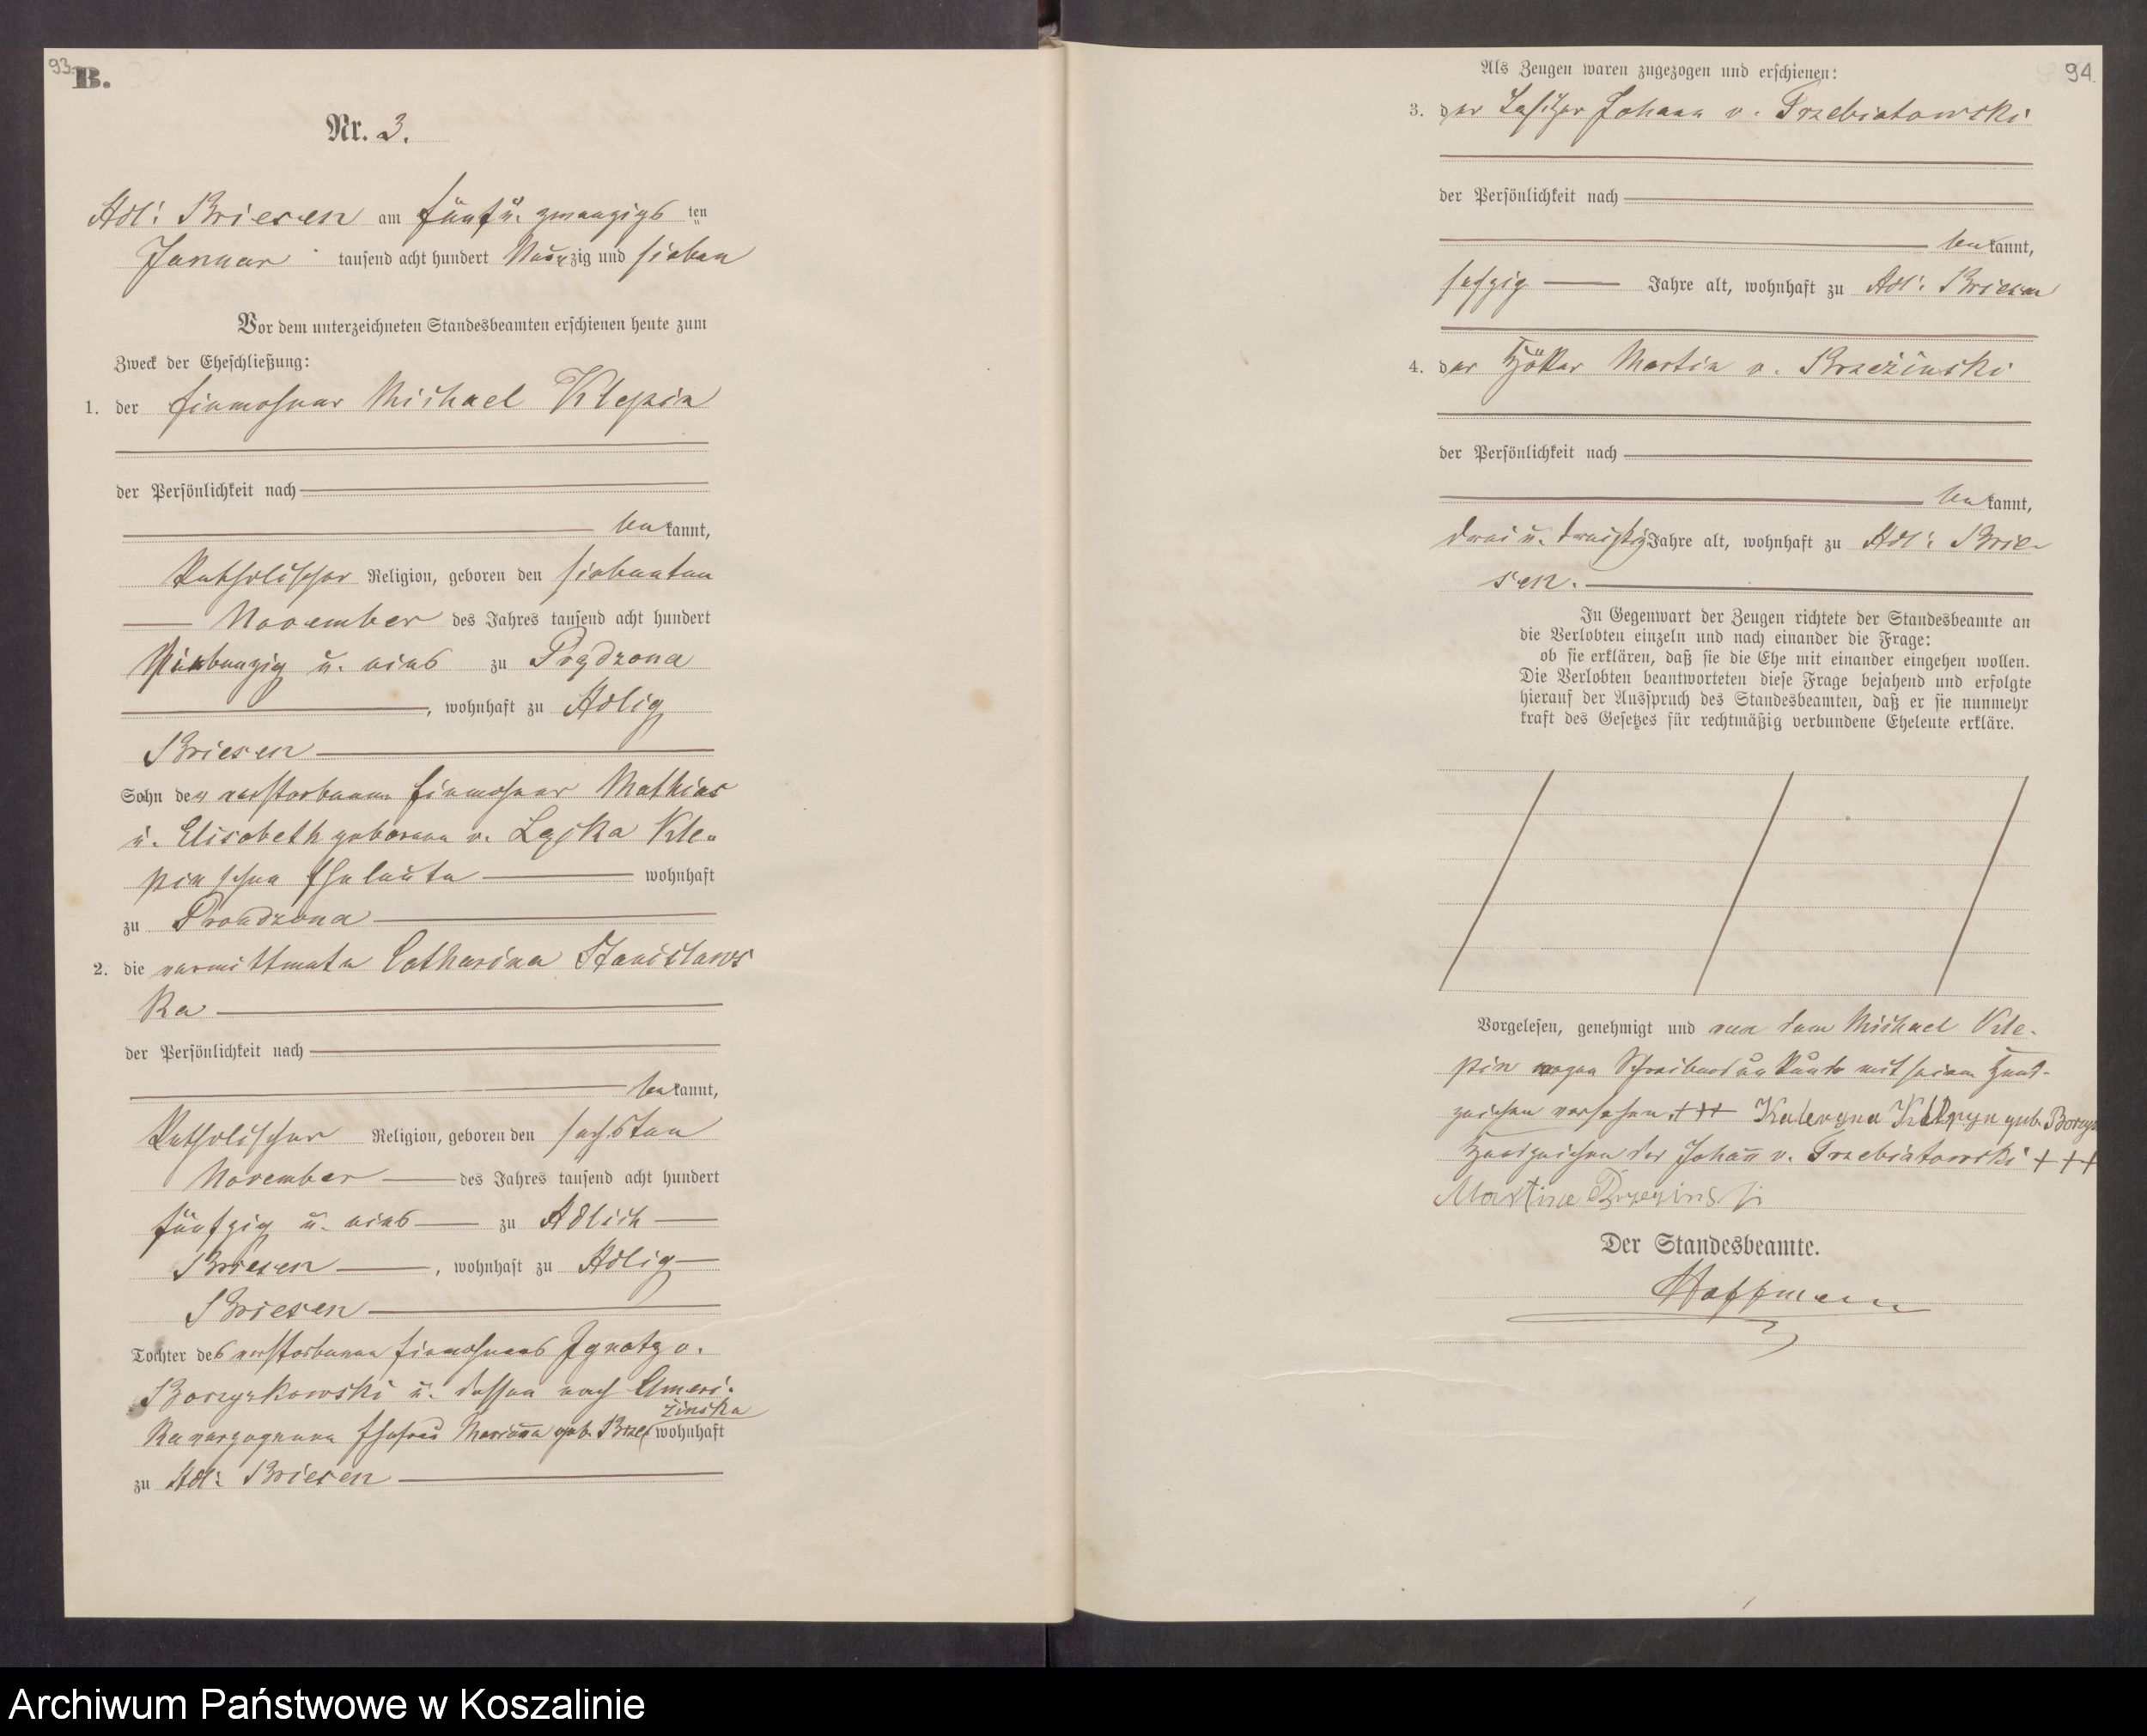 93.
B.
Nr. 3.
Adl: Briesen am fünf u. zwanzigs ten
Januar tausend acht hundert Neunzig und sieben
Vor dem unterzeichneten Standesbeamten erschienen heute zum
Zweck der Eheschließung:
1. der Einwohner Michael Klepin
der Persönlichkeit nach
be kannt,
Katholischer Religion, geboren den siebenten
November des Jahres tausend acht hundert
siebenzig u. eins zu Prądzona
, wohnhaft zu Adlig
Briesen
Sohn der verstorbenen Einwohner Mathias
u. Elisabeth geborene v. Kle-
pin schen Eheleute wohnhaft
zu Prondzona
2. die verwittwete Catharina Stanislaws
ka
der Persönlichkeit nach
be kannt,
Katholischer Religion, geboren den sechsten
November des Jahres tausend acht hundert
fünfzig u. eins zu Adlich
Briesen , wohnhaft zu Adlig
Briesen
Tochter des verstorbenen Einwohners Ignatz v.
Borzyskowski u. dessen nach Ameri-
ka verzogenen Ehefrau Marianna geb. Brze
zinska
wohnhaft
zu Adl: Briesen
94.
Als Zeugen waren zugezogen und erschienen:
3. der Besitzer Johann v. Trzebiatowski
der Persönlichkeit nach
be kannt,
sechzig Jahre alt, wohnhaft zu Adl: Briesen
4. der Martin v. Brzezinski
der Persönlichkeit nach
be kannt,
drei u. dreißig Jahre alt, wohnhaft zu Adl: Brie-
sen.
In Gegenwart der Zeugen richtete der Standesbeamte an
die Verlobten einzeln und nach einander die Frage:
ob sie erklären, daß sie die Ehe mit einander eingehen wollen.
Die Verlobten beantworteten diese Frage bejahend und erfolgte
hierauf der Ausspruch des Standesbeamten, daß er sie nunmehr
kraft des Gesetzes für rechtmäßig verbundene Eheleute erkläre.
Vorgelesen, genehmigt und von dem Michael Kle-
pin wegen Schreibensunkunde mit seinem Hand-
zeichen versehen. +++ Katerzyna geb.
Handzeichen des Johann v. Trzebiatowski +++
Martin
Der Standesbeamte.
Hoffmann
Archiwum Państwowe w Koszalinie